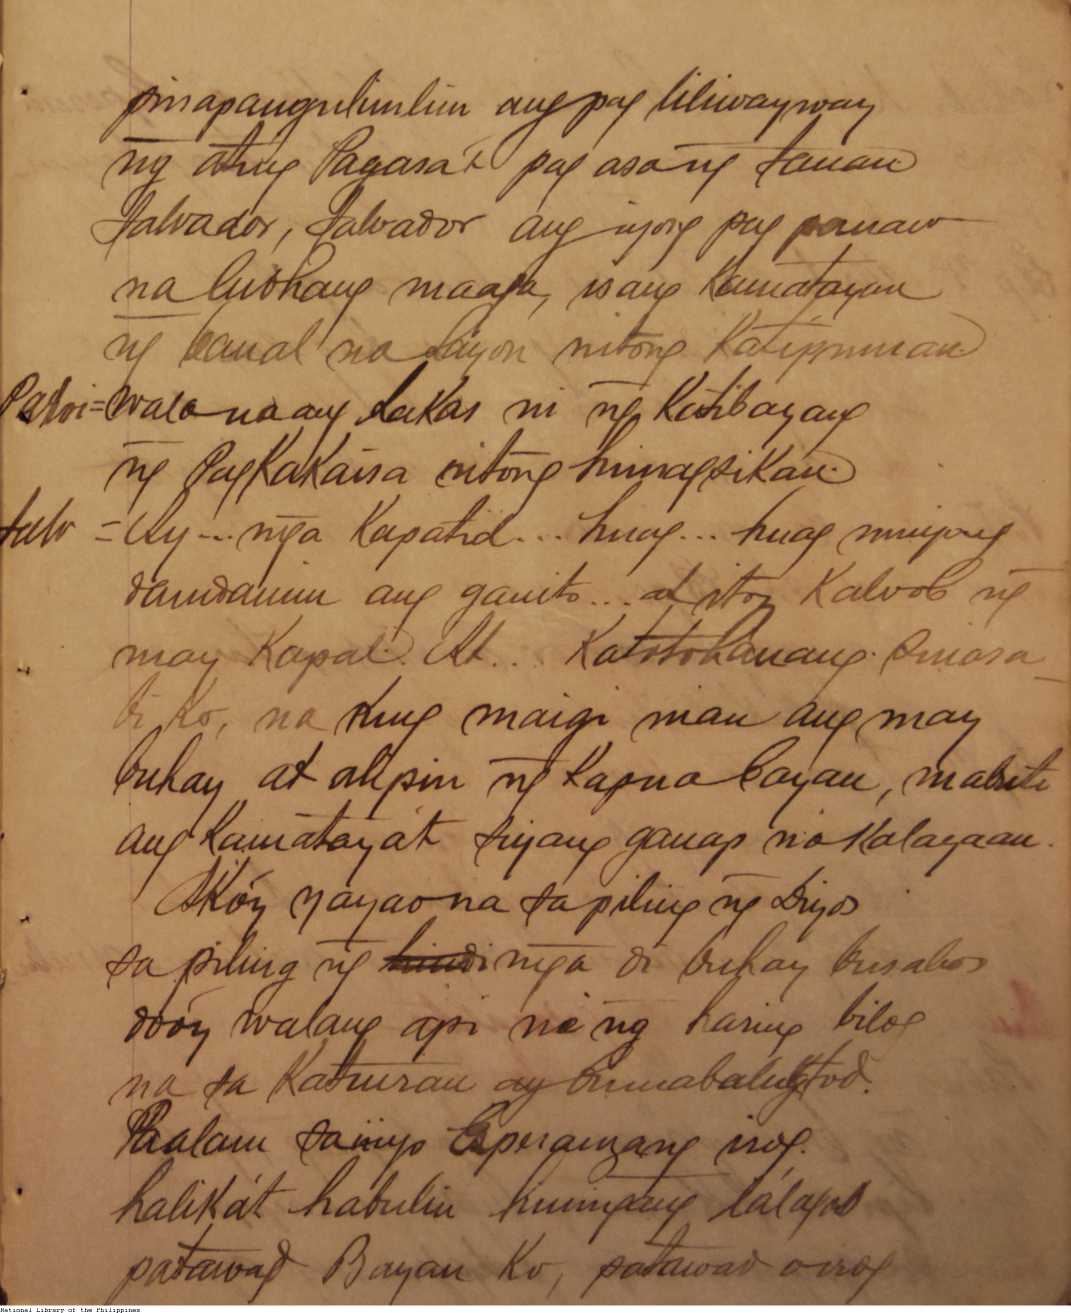 pinapangulimlim ang pag liliwayway
ñg ating Pagasa't pag asa ñg tanan
Salvador, Salvador ang iyong pag panaw
na lubhang maaga, isang Kamatayan
ñg banal na layon nitong Katipunan
Patri= Wala na ang Lakas ni ñg Katibayang
ñg PagKaKaisa nitong himagsikan.
Salv = Ay... mga Kapatid... huag... huag ninyong
damdamin ang ganito... at itoy Kaloob ñg
may Kapal. At... Katotohanang sinasa
bi Ko, na Kung maigi man ang may
buhay at alipin ñg Kapua bayan, mabuti
ang Kamatayát siyang ganap na Kalayaan.
AKóy yayao na sa piling ñg Diyos
sa piling ñg hindi mga di buhay busabos
dóóy walang api na ng haring bilog
na sa Katuiran ay bumabaluktod.
Paalam sa iniyo Esperanzang irog.
haliKát habulin hiningang lálagot
patawad Bayan Ko, patawad o irog
National Library of the Philippines